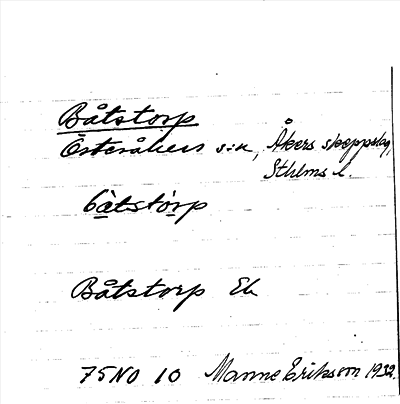 Båtstorp
Österåkers s:n, Åkers skeppslag,
Sthlms l.
bàtstòrp
Båtstorp Ek
75NO 10 Manne Eriksson 1932.